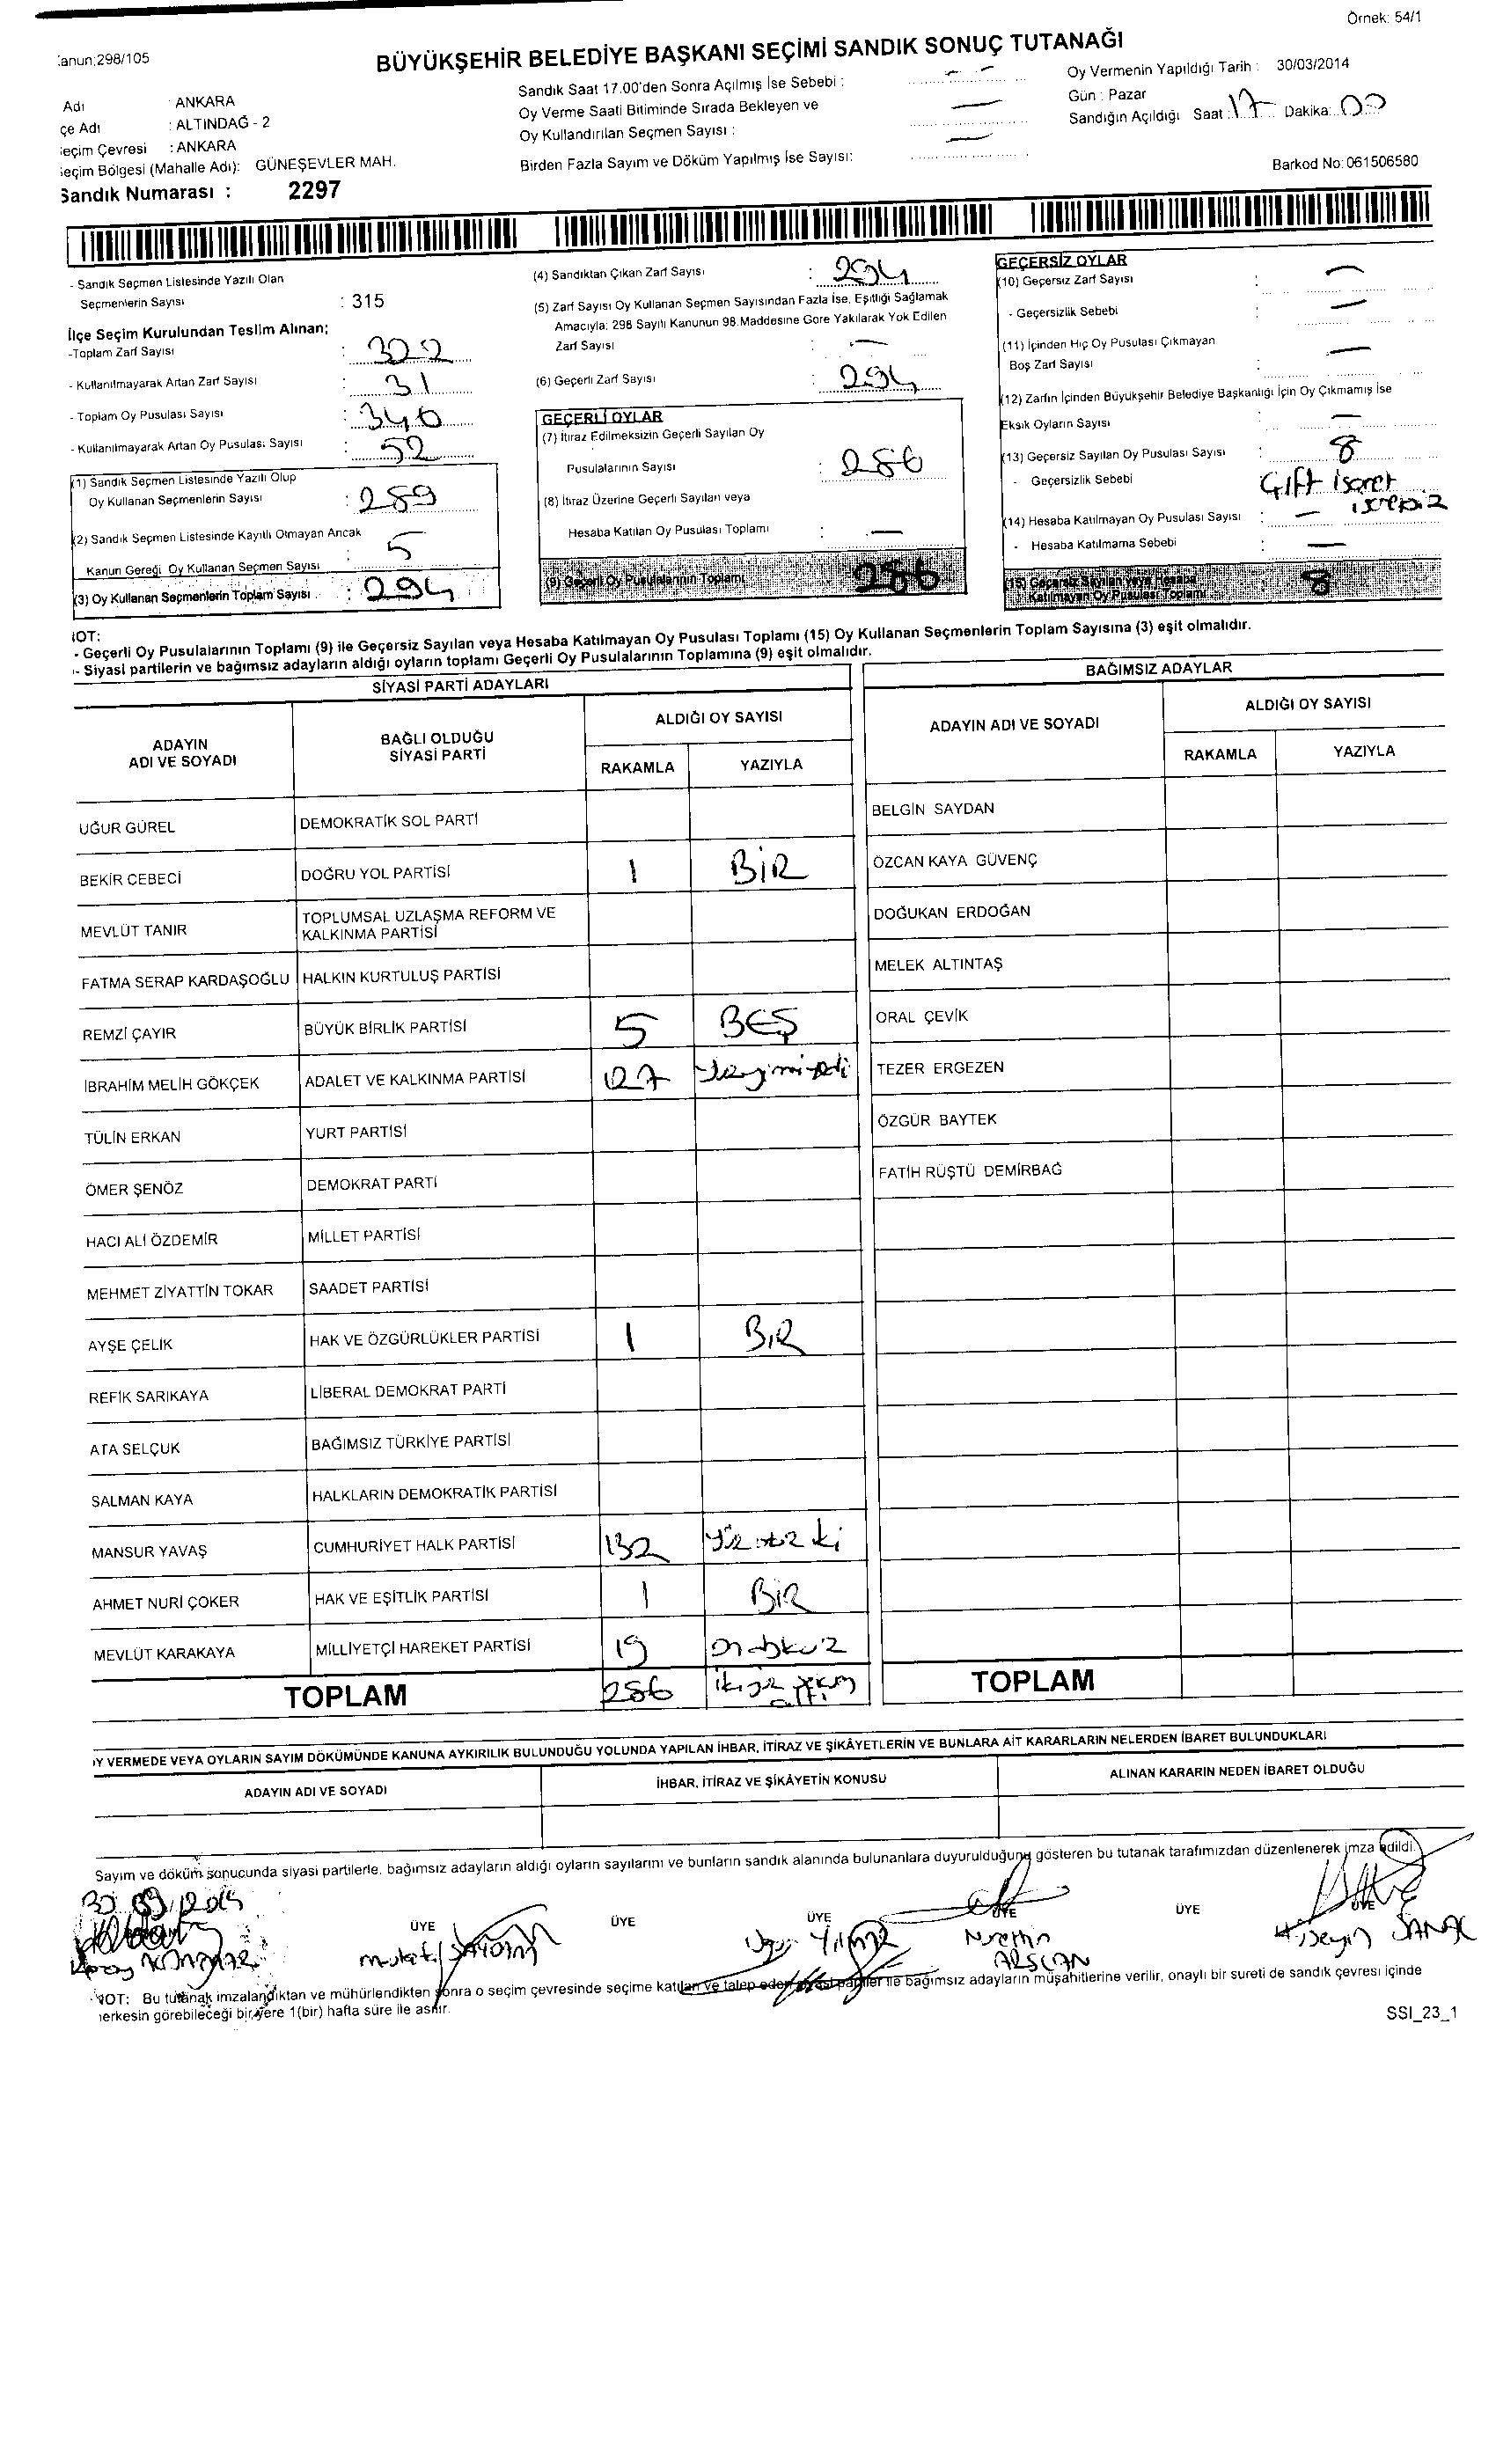 Örnek: 54/1
BÜYÜKŞEHİR BELEDİYE BAŞKANI SEÇİMİ SANDIK SONUÇ TUTANAĞI
:anun:298/105
Adı : ANKARA
çe Adı : ALTINDAĞ - 2
eçim Çevresi : ANKARA
eçim Bölgesi (Mahalle Adı): GÜNEŞEVLER MAH.
Sandık Numarası : 2297
Sandık Saat 17.00'den Sonra Açılmış İse Sebebi : —
Oy Verme Saati Bitiminde Sırada Bekleyen ve
Oy Kullandırılan Seçmen Sayısı : —
Birden Fazla Sayım ve Döküm Yapılmış İse Sayısı: —
Oy Vermenin Yapıldığı Tarih : 30/03/2014
Gün : Pazar
Sandığın Açıldığı Saat : 17 Dakika: 00
Barkod No: 061506580
- Sandık Seçmen Listesinde Yazılı Olan
Seçmenlerin Sayısı : 315
İlçe Seçim Kurulundan Teslim Alınan;
-Toplam Zarf Sayısı : 322
- Kullanılmayarak Artan Zarf Sayısı : 31
- Toplam Oy Pusulası Sayısı : 346
- Kullanılmayarak Artan Oy Pusulası Sayısı : 52
(1) Sandık Seçmen Listesinde Yazılı Olup
Oy Kullanan Seçmenlerin Sayısı : 289
(2) Sandık Seçmen Listesinde Kayıtlı Olmayan Ancak
Kanun Gereği Oy Kullanan Seçmen Sayısı : 5
(3) Oy Kullanan Seçmenlerin Toplam Sayısı : 294
(4) Sandıktan Çıkan Zarf Sayısı : 294
(5) Zarf Sayısı Oy Kullanan Seçmen Sayısından Fazla İse, Eşitliği Sağlamak
Amacıyla: 298 Sayılı Kanunun 98.Maddesine Göre Yakılarak Yok Edilen
Zarf Sayısı : —
(6) Geçerli Zarf Sayısı : 294
GEÇERLİ OYLAR
(7) İtiraz Edilmeksizin Geçerli Sayılan Oy
Pusulalarının Sayısı : 286
(8) İtiraz Üzerine Geçerli Sayılan veya
Hesaba Katılan Oy Pusulası Toplamı : —
(9) Geçerli Oy Pusulalarının Toplamı 286
GEÇERSİZ OYLAR
(10) Geçersiz Zarf Sayısı : —
- Geçersizlik Sebebi : —
(11) İçinden Hiç Oy Pusulası Çıkmayan
Boş Zarf Sayısı : —
(12) Zarfın İçinden Büyükşehir Belediye Başkanlığı İçin Oy Çıkmamış İse
Eksik Oyların Sayısı : —
(13) Geçersiz Sayılan Oy Pusulası Sayısı : 8
- Geçersizlik Sebebi Çift işaret
(14) Hesaba Katılmayan Oy Pusulası Sayısı : —
- Hesaba Katılmama Sebebi : —
(15) Geçersiz Sayılan veya Hesaba
Katılmayan Oy Pusulası Toplamı 8
IOT:
- Geçerli Oy Pusulalarının Toplamı (9) ile Geçersiz Sayılan veya Hesaba Katılmayan Oy Pusulası Toplamı (15) Oy Kullanan Seçmenlerin Toplam Sayısına (3) eşit olmalıdır.
- Siyasi partilerin ve bağımsız adayların aldığı oyların toplamı Geçerli Oy Pusulalarının Toplamına (9) eşit olmalıdır.
SİYASİ PARTİ ADAYLARI BAĞIMSIZ ADAYLAR
ADAYIN ADI VE SOYADI BAĞLI OLDUĞU SİYASİ PARTİ ALDIĞI OY SAYISI ADAYIN ADI VE SOYADI ALDIĞI OY SAYISI
RAKAMLA YAZIYLA RAKAMLA YAZIYLA
UĞUR GÜREL DEMOKRATİK SOL PARTİ BELGİN SAYDAN
BEKİR CEBECİ DOĞRU YOL PARTİSİ 1 BİR ÖZCAN KAYA GÜVENÇ
MEVLÜT TANIR TOPLUMSAL UZLAŞMA REFORM VE KALKINMA PARTİSİ DOĞUKAN ERDOĞAN
FATMA SERAP KARDAŞOĞLU HALKIN KURTULUŞ PARTİSİ MELEK ALTINTAŞ
REMZİ ÇAYIR BÜYÜK BİRLİK PARTİSİ 5 BEŞ ORAL ÇEVİK
İBRAHİM MELİH GÖKÇEK ADALET VE KALKINMA PARTİSİ 127 TEZER ERGEZEN
TÜLİN ERKAN YURT PARTİSİ ÖZGÜR BAYTEK
ÖMER ŞENÖZ DEMOKRAT PARTİ FATİH RÜŞTÜ DEMİRBAĞ
HACI ALİ ÖZDEMİR MİLLET PARTİSİ
MEHMET ZİYATTİN TOKAR SAADET PARTİSİ
AYŞE ÇELİK HAK VE ÖZGÜRLÜKLER PARTİSİ 1 BİR
REFİK SARIKAYA LİBERAL DEMOKRAT PARTİ
ATA SELÇUK BAĞIMSIZ TÜRKİYE PARTİSİ
SALMAN KAYA HALKLARIN DEMOKRATİK PARTİSİ
MANSUR YAVAŞ CUMHURİYET HALK PARTİSİ 132
AHMET NURİ ÇOKER HAK VE EŞİTLİK PARTİSİ 1 BİR
MEVLÜT KARAKAYA MİLLİYETÇİ HAREKET PARTİSİ 19 Ondokuz
TOPLAM 286 TOPLAM
IY VERMEDE VEYA OYLARIN SAYIM DÖKÜMÜNDE KANUNA AYKIRILIK BULUNDUĞU YOLUNDA YAPILAN İHBAR, İTİRAZ VE ŞİKÂYETLERİN VE BUNLARA AİT KARARLARIN NELERDEN İBARET BULUNDUKLARI
ADAYIN ADI VE SOYADI İHBAR, İTİRAZ VE ŞİKÂYETİN KONUSU ALINAN KARARIN NEDEN İBARET OLDUĞU
Sayım ve döküm sonucunda siyasi partilerle, bağımsız adayların aldığı oyların sayılarını ve bunların sandık alanında bulunanlara duyurulduğunu gösteren bu tutanak tarafımızdan düzenlenerek imza edildi.
ÜYE ÜYE ÜYE ÜYE ÜYE ÜYE
Uğur Yılmaz Nurettin ARSLAN Hüseyin
NOT: Bu tutanak imzalandıktan ve mühürlendikten sonra o seçim çevresinde seçime katılan ve talep eden siyasi partiler ile bağımsız adayların müşahitlerine verilir, onaylı bir sureti de sandık çevresi içinde
ıerkesin görebileceği bir yere 1(bir) hafta süre ile asılır.
SSI_23_1